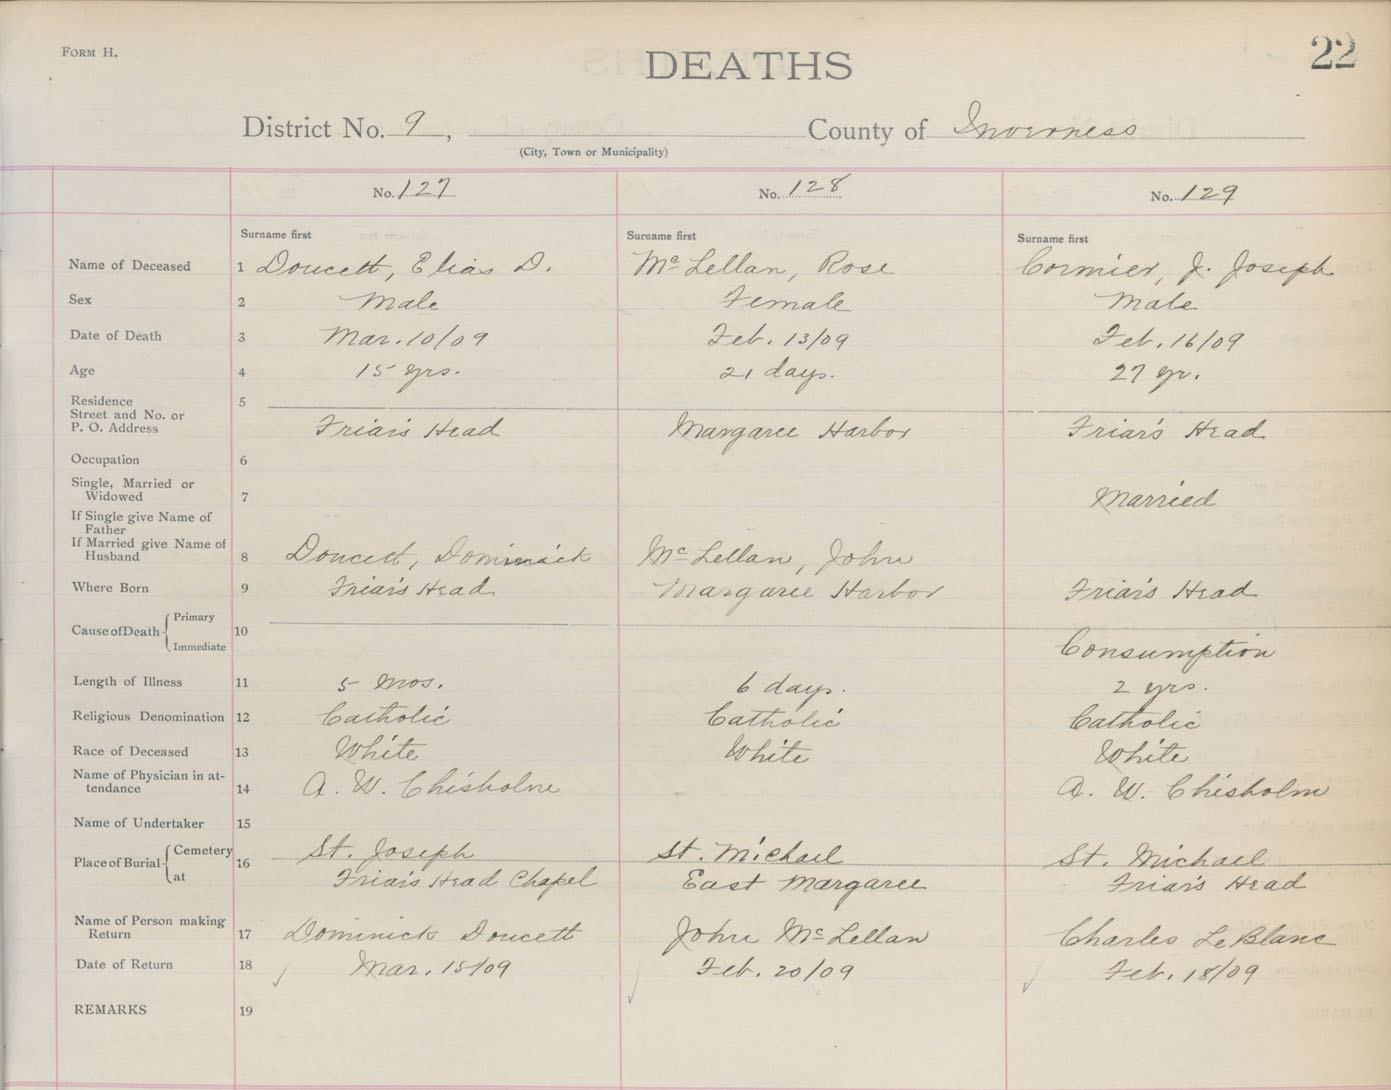 FORM H.
DEATHS
22
District No. 9, County of Inverness
(City, Town or Municipality)
No. 127 No. 128 No. 129
Surname first Surname first Surname first
Name of Deceased 1 Doucett, Elias D. McLellan, Rose Cormier, J. Joseph
Sex 2 Male Female Male
Date of Death 3 Mar. 10/09 Feb. 13/09 Feb. 16/09
Age 4 15 yrs. 21 days. 27 yr.
Residence 5
Street and No. or
P. O. Address Friar's Head Margaree Harbor Friar's Head
Occupation 6
Single, Married or
Widowed 7 Married
If Single give Name of
Father
If Married give Name of
Husband 8 Doucett, Dominick McLellan, John
Where Born 9 Friar's Head Margaree Harbor Friar's Head
Cause of Death { Primary 10
Immediate Consumption
Length of Illness 11 5 mos. 6 days. 2 yrs.
Religious Denomination 12 Catholic Catholic Catholic
Race of Deceased 13 White White White
Name of Physician in at-
tendance 14 A. W. Chisholm A. W. Chisholm
Name of Undertaker 15
Place of Burial { Cemetery 16 St. Joseph St. Michael St. Michael
at Friar's Head Chapel East Margaree Friar's Head
Name of Person making
Return 17 Dominick Doucett John McLellan Charles LeBlanc
Date of Return 18 Mar. 15/09 Feb. 20/09 Feb. 18/09
REMARKS 19